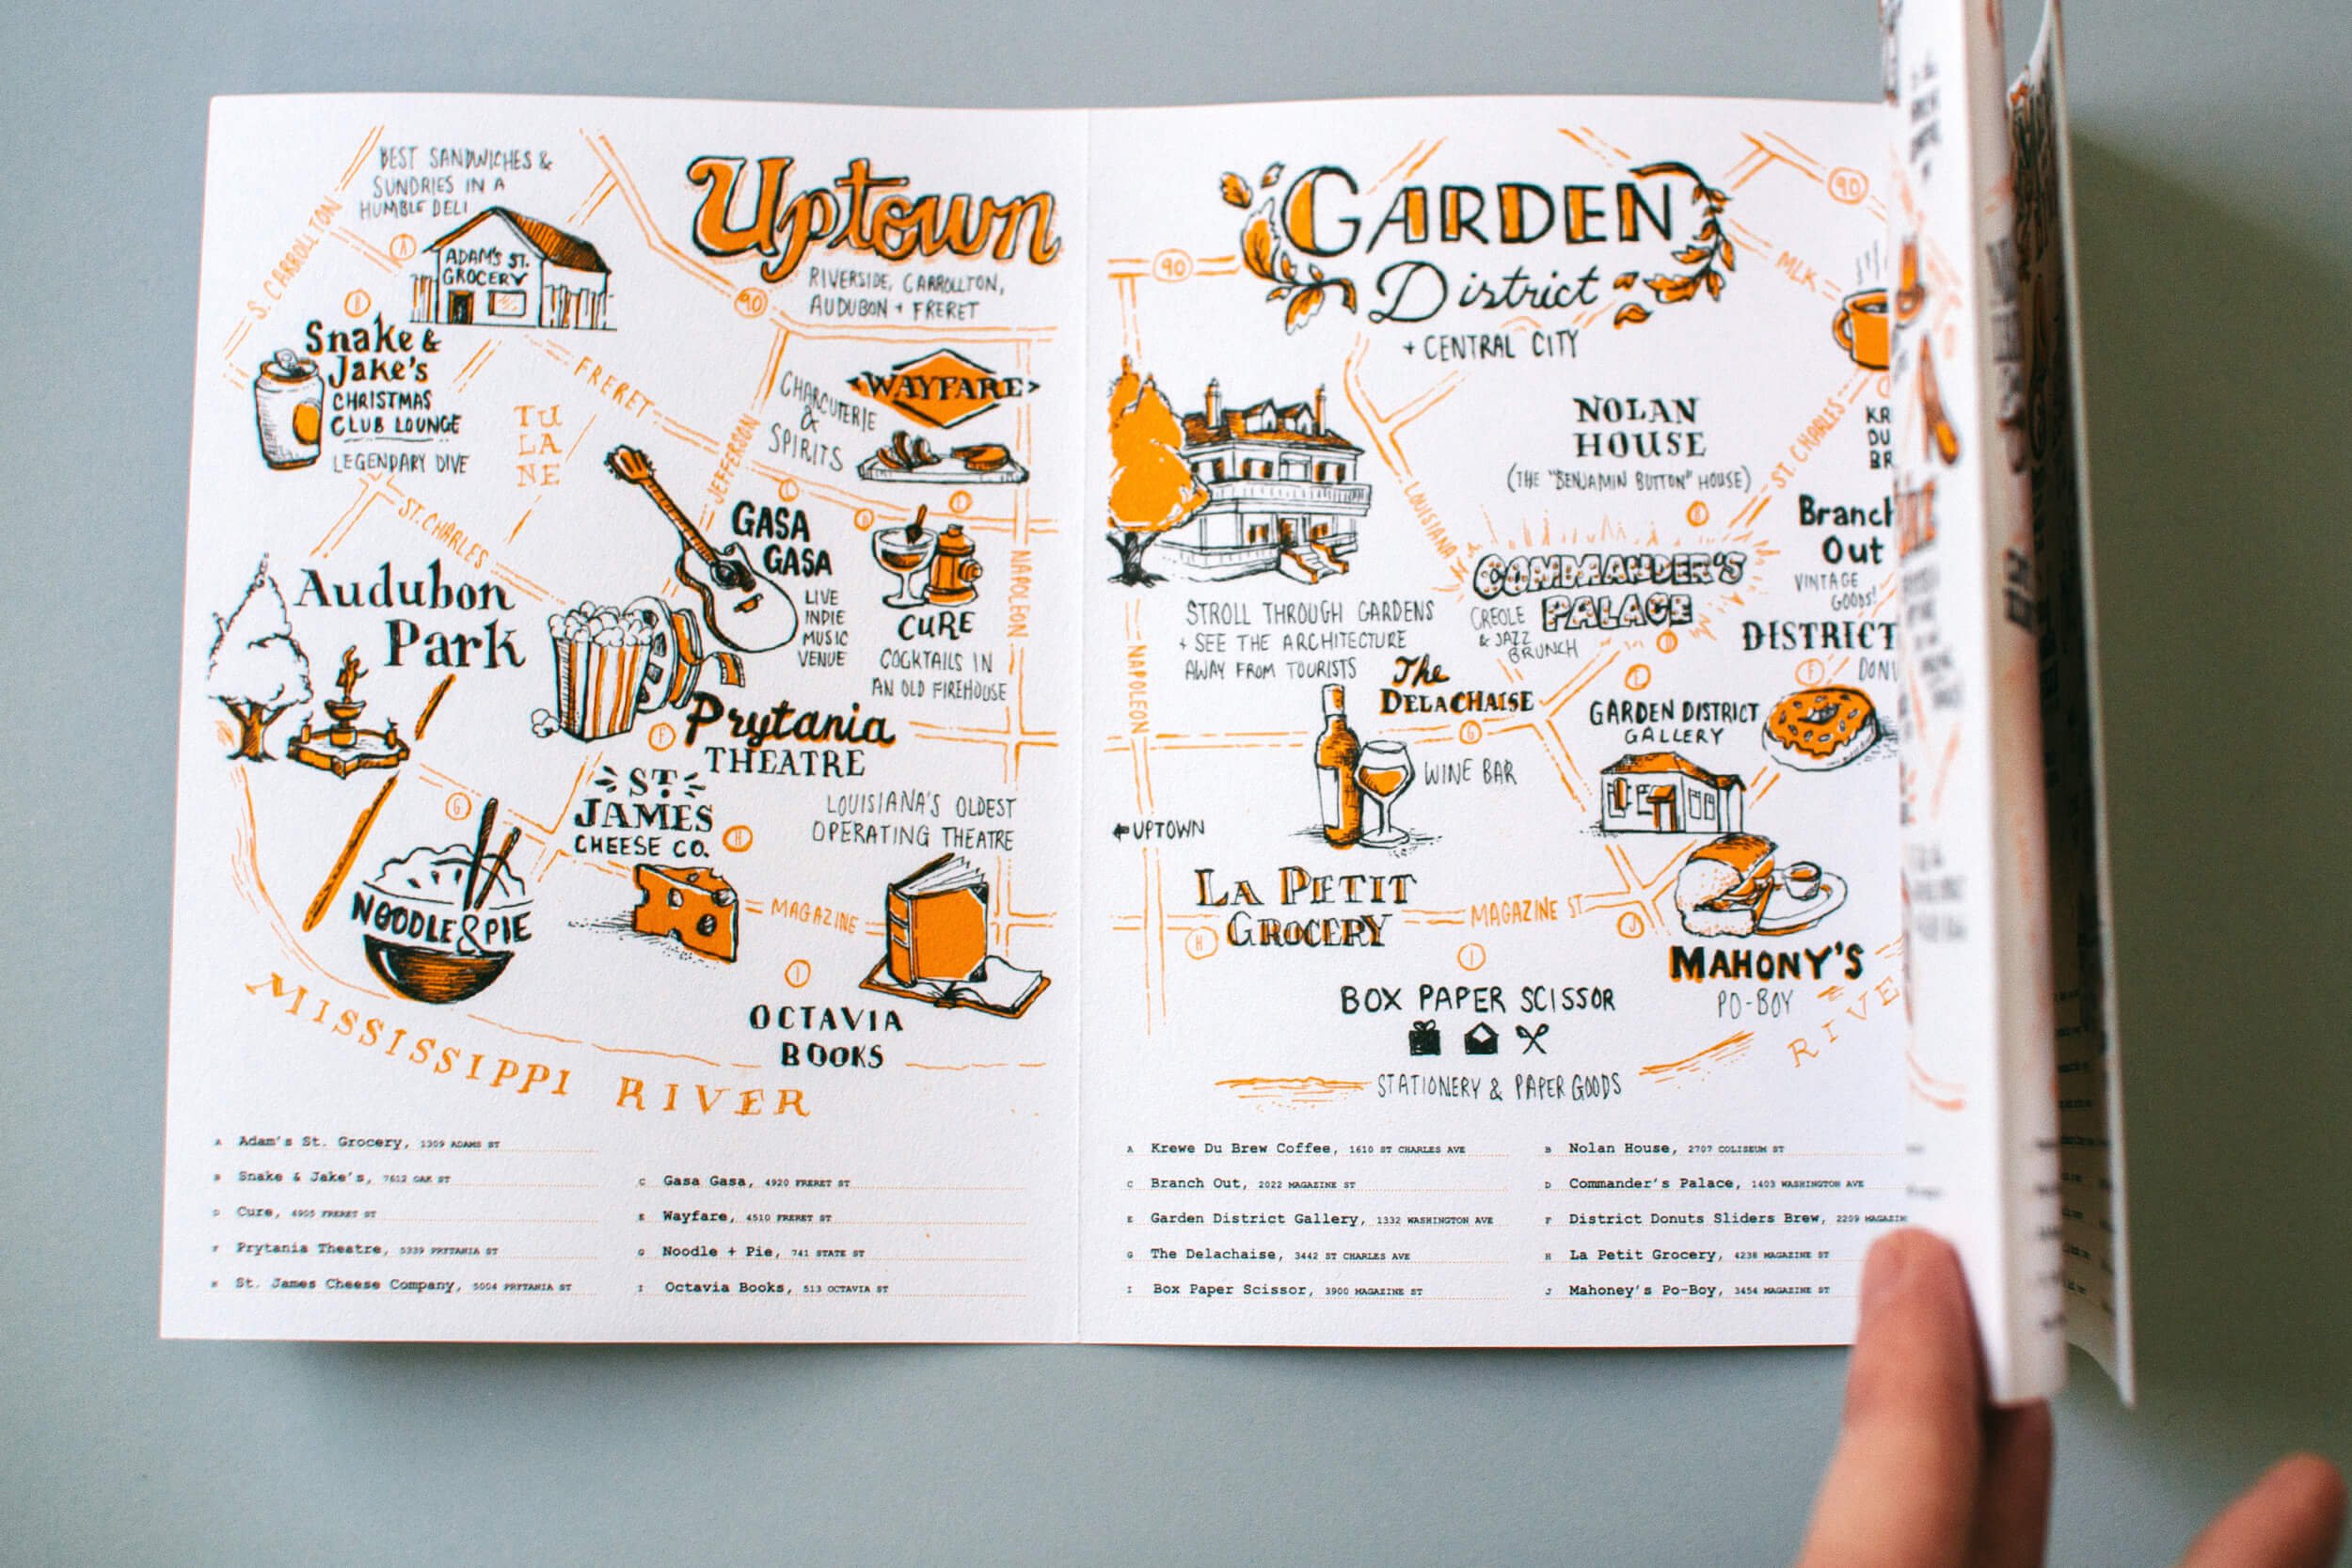 Uptown
RIVERSIDE, CARROLLTON,
AUDUBON + FRERET
BEST SANDWICHES &
SUNDRIES IN A
HUMBLE DELI
S. CARROLLTON
A
ADAM'S ST.
GROCERY
B
Snake &
Jake's
CHRISTMAS
CLUB LOUNGE
LEGENDARY DIVE
90
FRERET
TU
LA
NE
JEFFERSON
CHARCUTERIE
&
SPIRITS
WAYFARE
ST. CHARLES
GASA
GASA
LIVE
INDIE
MUSIC
VENUE
CURE
COCKTAILS IN
AN OLD FIREHOUSE
NAPOLEON
Audubon
Park
F
Prytania
THEATRE
LOUISIANA'S OLDEST
OPERATING THEATRE
ST.
JAMES
CHEESE CO.
H
G
NOODLE & PIE
MAGAZINE
I
OCTAVIA
BOOKS
MISSISSIPPI RIVER
A Adam's St. Grocery, 1309 ADAMS ST
B Snake & Jake's, 7612 OAK ST
C Gasa Gasa, 4920 FRERET ST
D Cure, 4905 FRERET ST
E Wayfare, 4510 FRERET ST
F Prytania Theatre, 5339 PRYTANIA ST
G Noodle + Pie, 741 STATE ST
H St. James Cheese Company, 5004 PRYTANIA ST
I Octavia Books, 513 OCTAVIA ST
GARDEN
District
+ CENTRAL CITY
90
90
MLK
NOLAN
HOUSE
(THE "BENJAMIN BUTTON" HOUSE)
ST. CHARLES
KR
DU
BR
LOUISIANA
B
Branch
Out
VINTAGE
GOODS!
COMMANDER'S
PALACE
CREOLE
& JAZZ
BRUNCH
D
STROLL THROUGH GARDENS
+ SEE THE ARCHITECTURE
AWAY FROM TOURISTS
DISTRICT
DONU
F
NAPOLEON
The
DELACHAISE
G
WINE BAR
E
GARDEN DISTRICT
GALLERY
←UPTOWN
LA PETIT
GROCERY
H
MAGAZINE ST
J
MAHONY'S
PO-BOY
I
BOX PAPER SCISSOR
STATIONERY & PAPER GOODS
RIVE
A Krewe Du Brew Coffee, 1610 ST CHARLES AVE
B Nolan House, 2707 COLISEUM ST
C Branch Out, 2022 MAGAZINE ST
D Commander's Palace, 1403 WASHINGTON AVE
E Garden District Gallery, 1332 WASHINGTON AVE
F District Donuts Sliders Brew, 2209 MAGAZIN
G The Delachaise, 3442 ST CHARLES AVE
H La Petit Grocery, 4238 MAGAZINE ST
I Box Paper Scissor, 3900 MAGAZINE ST
J Mahoney's Po-Boy, 3454 MAGAZINE ST